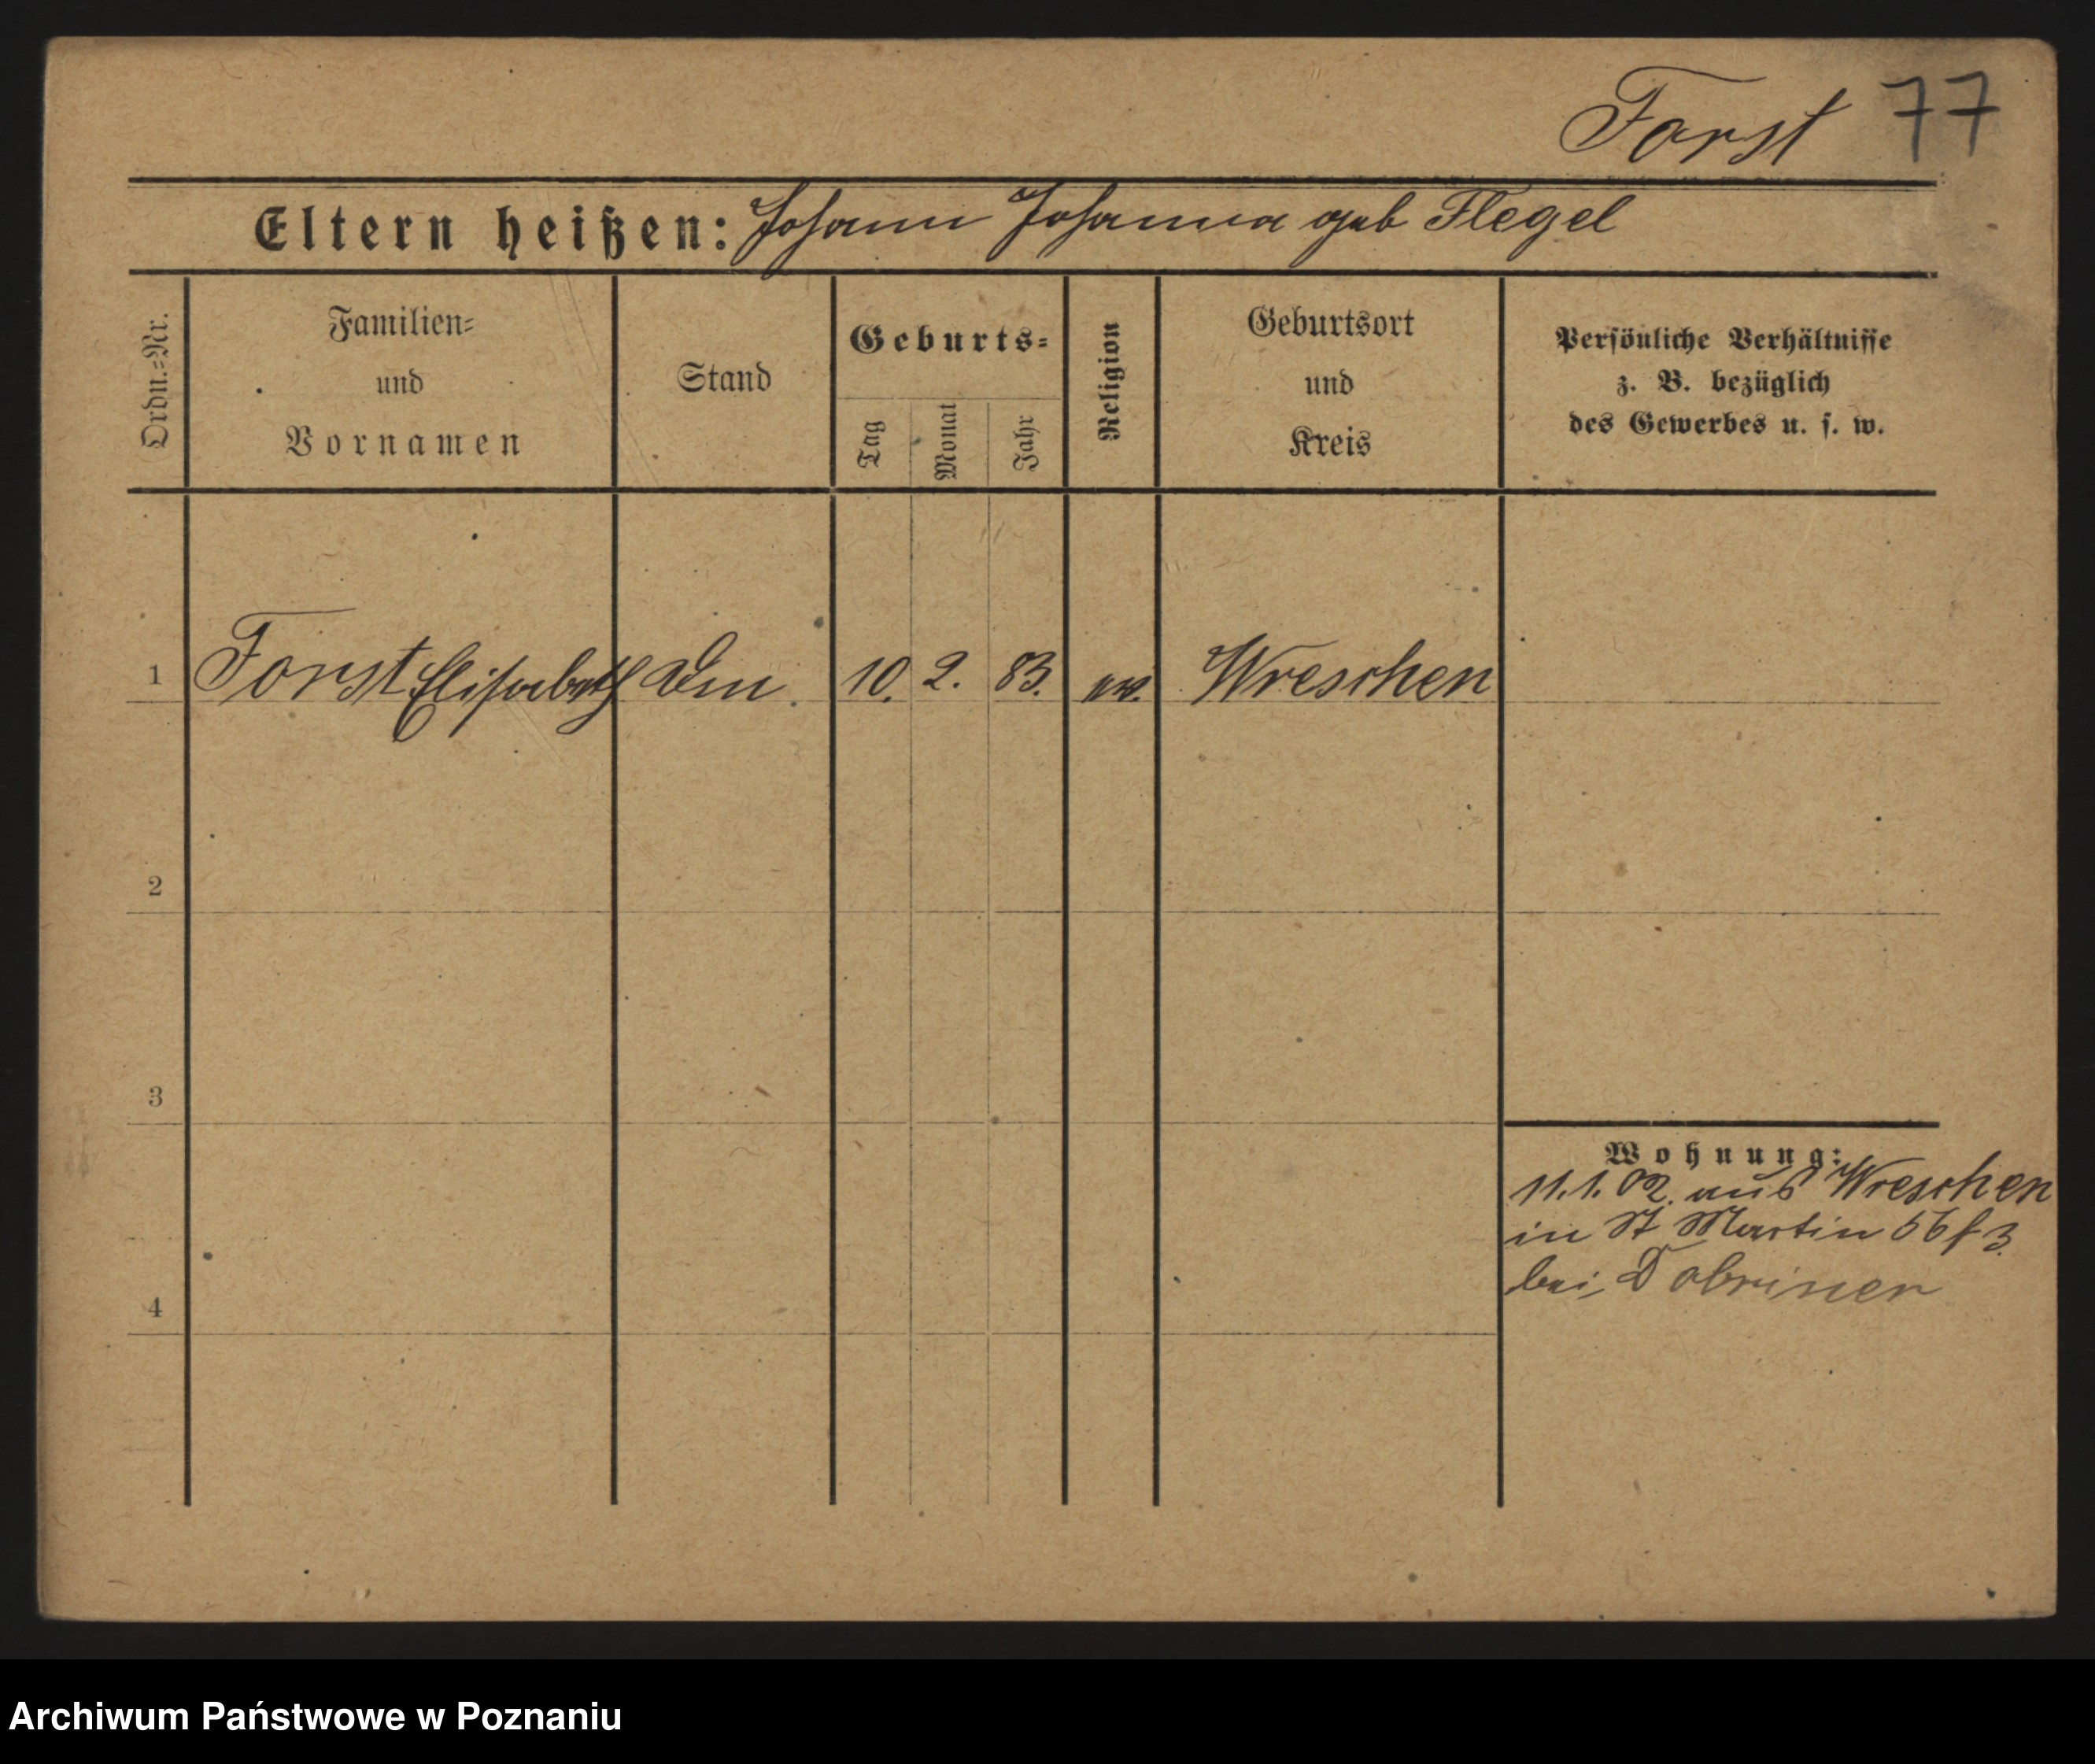 Forst 77
Eltern heißen: Johann Johanna geb Flegel
Ordn.=Nr.
Familien=
und
Vornamen
Stand
Geburts=
Tag
Monat
Jahr
Religion
Geburtsort
und
Kreis
Persönliche Verhältnisse
z. B. bezüglich
des Gewerbes u. s. w.
1 Forst Elisabeth 10. 2. 83. ev. Wreschen
2
3
4
Wohnung:
11.1.02. aus Wreschen
in St Martin 56 f 3.
bei Dobriner
Archiwum Państwowe w Poznaniu